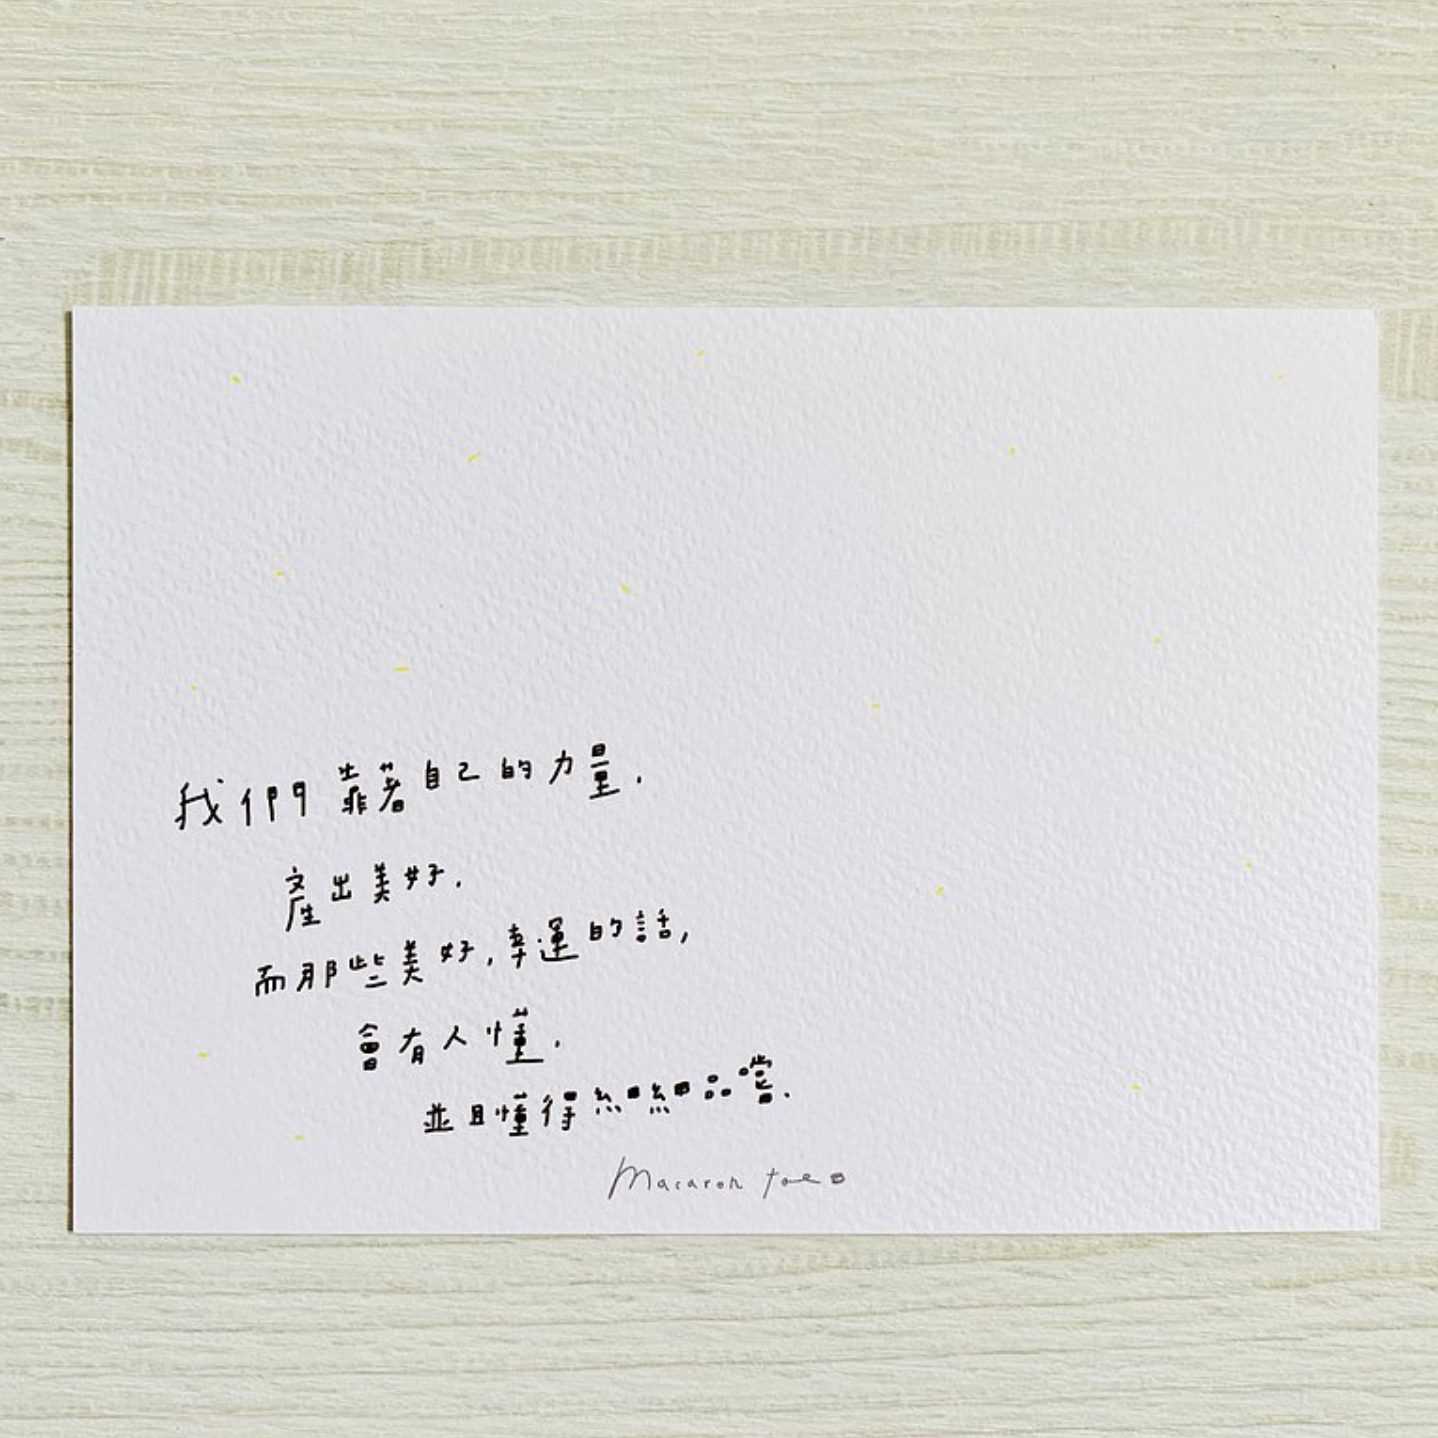 我們靠著自己的力量.
產出美好.
而那些美好,幸運的話,
會有人懂.
並且懂得細細品嚐.
Macaron toe